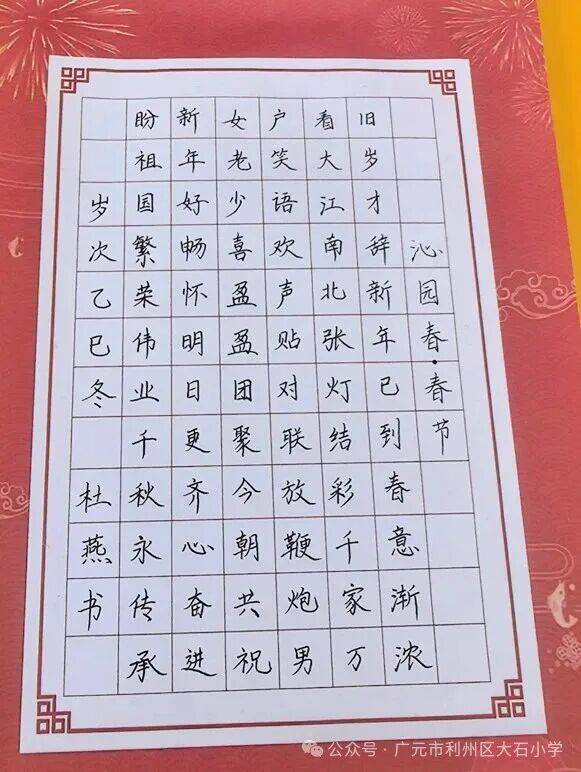 沁园春·春节
旧岁才辞新年已到春意渐浓
看大江南北张灯结彩千家万
户笑语欢声贴对联放鞭炮男
女老少喜盈盈团聚今朝共祝
新年好畅怀明日更齐心奋进
盼祖国繁荣伟业千秋永传承
岁次乙巳冬 杜燕书
公众号·广元市利州区大石小学